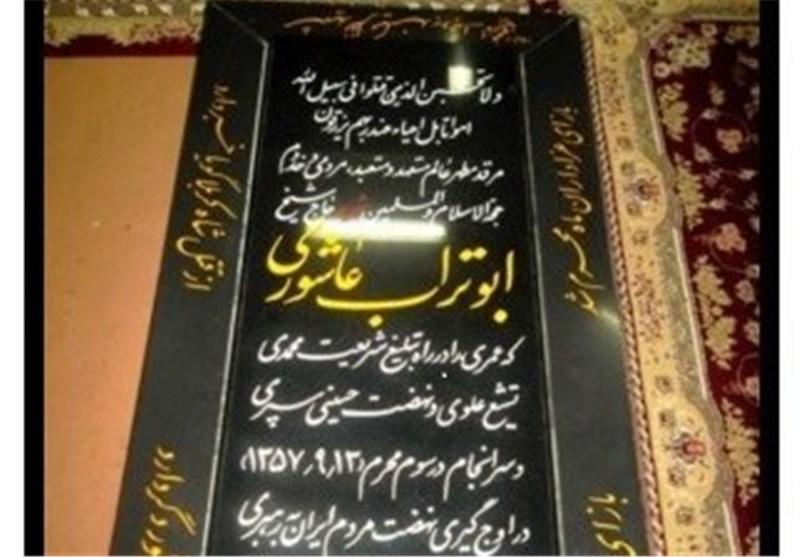 ولا تحسبن الذین قتلوا فی سبیل الله
امواتا بل احیاء عند ربهم یرزقون
مرقد مطهر عالم متعهد و متعبد، مردمی و خدوم
حجةالاسلام والمسلمین حاج شیخ
ابوتراب عاشوری
که عمری را در راه تبلیغ شریعت محمدی
تشیع علوی و نهضت حسینی سپری
و سرانجام در سوم محرم (۱۳٫۹٫۱۳۵۷)
در اوج گیری نهضت مردم ایران به رهبری
باز ای عزاداران ماه محرم شد
باز ای